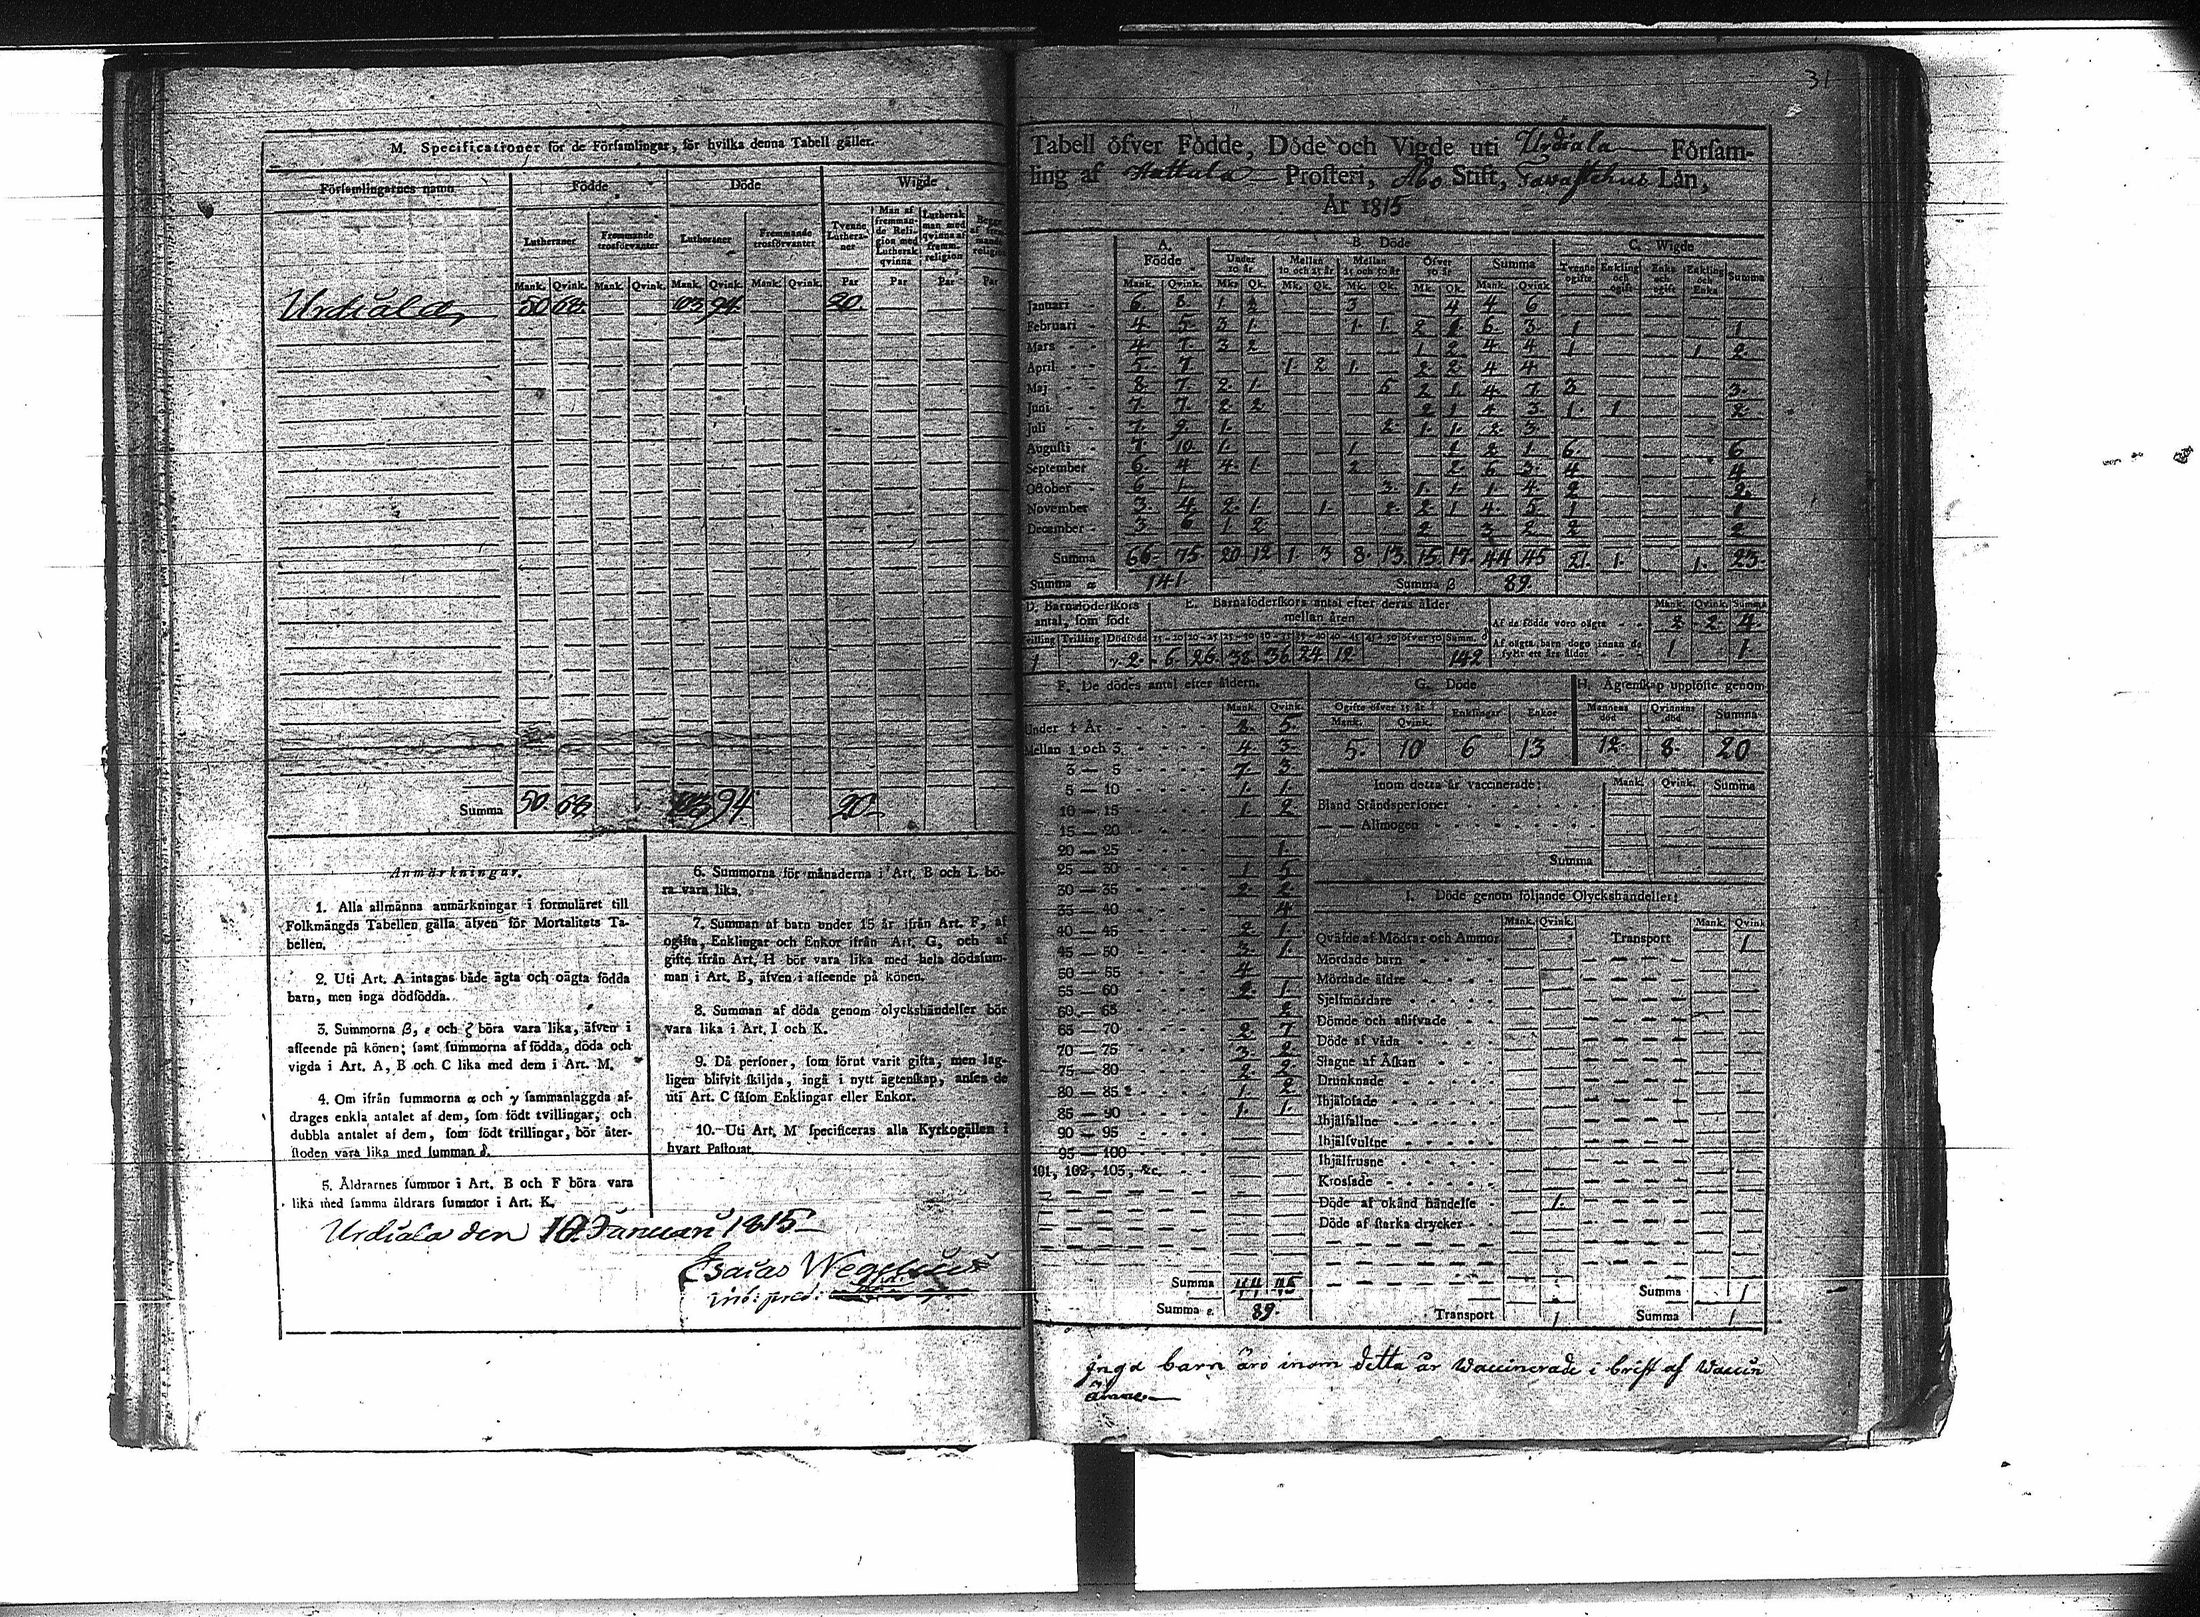 31
M. Specificationer för de Församlingar, för hvilka denna Tabell gäller.
Församlingarnes namn Födde Döde Wigde
Lutheraner Fremmande trosförvanter Lutheraner Fremmande trosförvanter Tvenne Lutheraner Man af fremmande Religion med Luthersk qvinna Luthersk man med qvinna af fremm. religion
Mank. Qvink. Mank. Qvink. Mank. Qvink. Mank. Qvink. Par Par Par Par
Urdiala 50 68. 103 94. 20.
Summa 50. 68. 94 20
Anmärkningar.
1. Alla allmänna anmärkningar i formuläret till
Folkmängds Tabellen gälla äfven för Mortalitets Ta-
bellen.
2. Uti Art. A intagas både ägta och oägta födda
barn, men inga dödfödda.
3. Summorna β, ε och ζ böra vara lika, äfven i
afseende på könen; samt summorna af födda, döda och
vigda i Art. A, B och C lika med dem i Art. M.
4. Om ifrån summorna α och γ sammanlaggda af-
drages enkla antalet af dem, som födt tvillingar, och
dubbla antalet af dem, som födt trillingar, bör åter-
stoden vara lika med summan δ.
5. Åldrarnes summor i Art. B och F böra vara
lika med samma åldrars summor i Art. K.
6. Summorna för månaderna i Art. B och L bö-
ra vara lika.
7. Summan af barn under 15 år ifrån Art. F, af
ogifta, Enklingar och Enkor ifrån Art. G, och af
gifte ifrån Art. H bör vara lika med hela dödssum-
man i Art. B, äfven i afseende på könen.
8. Summan af döda genom olyckshändelser bör
vara lika i Art. I och K.
9. Då personer, som förut varit gifta, men lag-
ligen blifvit skiljda, ingå i nytt ägtenskap, anses de
uti Art. C såsom Enklingar eller Enkor.
10. Uti Art. M specificeras alla Kyrkogällen i
hvart Pastorat.
Urdiala den 10 Januari 1815
Esaias Wegelius
Tabell öfver Födde, Döde och Vigde uti Urdiala Församling
ling af Hattula Prosteri, Åbo Stift, Tavastehus Län,
År 1815
A. Födde B. Döde C. Wigde
Under 10 år Mellan 10 och 25 år Mellan 25 och 50 år Öfver 50 år Summa Tvenne ogifte Enkling och ogift Enka och ogift Enkling och Enka Summa
Mank. Qvink. Mk. Qk. Mk. Qk. Mk. Qk. Mk. Qk. Mank. Qvink
Januari 6. 8. 1. 2 3 4 4 6
Februari 4 5. 3 1. 1. 1. 2 1 6. 3. 1 1
Mars 4 7. 3 2 1 2 4 4 1 1 2.
April 5. 7 1. 2 1. 2 2 4 4
Maj 8. 7. 2. 1. 5 2 1. 4. 7. 3 3.
Juni 7. 7. 2 2 2 1 4 3 1. 1 2.
Juli 7. 9. 1. 2 1. 1. 2 3
Augusti 7. 10. 1. 1 1 2 1 6. 6
September 6. 4 4. 1. 2 2 6 3. 4 4
October 6 1. 3. 1. 1. 1. 4. 2 2.
November 3. 4. 2. 1. 1. 2. 2 1 4. 5. 1 1
December 3 6 1. 2 2 3 2 2 2
Summa 66. 75. 20 12 1. 3 8. 13. 15. 17. 44 45 21. 1. 1. 23.
Summa α 141. Summa β 89.
D. Barnsöderskors antal, som födt E. Barnaföderskors antal efter deras ålder mellan åren Mank. Qvink. Summa
Trilling Dödfödd 15—20 20—25 25—30 30—35 35—40 40—45 45—50 öfver 50 Samm. δ
Af de födde voro oägta 2 2 4.
1 2. 6. 26. 38. 36 24. 12. 142
Af oägta barn dogo innan de fyllt ett års ålder 1 1.
F. De dödes antal efter åldern. Mank. Qvink.
Under 1 År 8. 5.
Mellan 1 och 3. 4. 3.
3 — 5 7 3
5 — 10 1. 1.
10 — 15 1 2
15 — 20
20 — 25 1.
25 — 30 1 5
30 — 35 2. 2.
35 — 40 4
40 — 45 2 1.
45 — 50 3. 1.
50 — 55 4
55 — 60 2. 1.
60 — 65 2
65 — 70 2 7
70 — 75 3. 2.
75 — 80 2. 2.
80 — 85 1. 2
85 — 90 1. 1.
90 — 95
95 — 100
101, 102, 103, &c.
Summa 44 45
Summa ε. 89.
G. Döde
Ogifte öfver 15 år Enklingar Enkor
Mank. Qvink.
5. 10 6 13
H. Ägtenskap upplöste genom
Mannens död Qvinnans död Summa
12. 8. 20
Inom detta år vaccinerade: Mank. Qvink. Summa
Bland Ståndspersoner
— — Allmogen
Summa
I. Döde genom följande Olyckshändelser:
Mank. Qvink. Mank. Qvink
Qväfde af Mödrar och Ammor Transport 1
Mördade barn
Mördade äldre
Sjelfmördare
Dömde och aflifvade
Döde af våda
Slagne af Åskan
Drunknade
Ihjälosade
Ihjälfallne
Ihjälsvultne
Ihjälfrusne
Krossade
Döde af okänd händelse 1.
Döde af starka drycker
Summa 1
Transport 1 Summa 1
Inga barn äro inom detta år Vaccinerade i brist af Vaccin
ämne